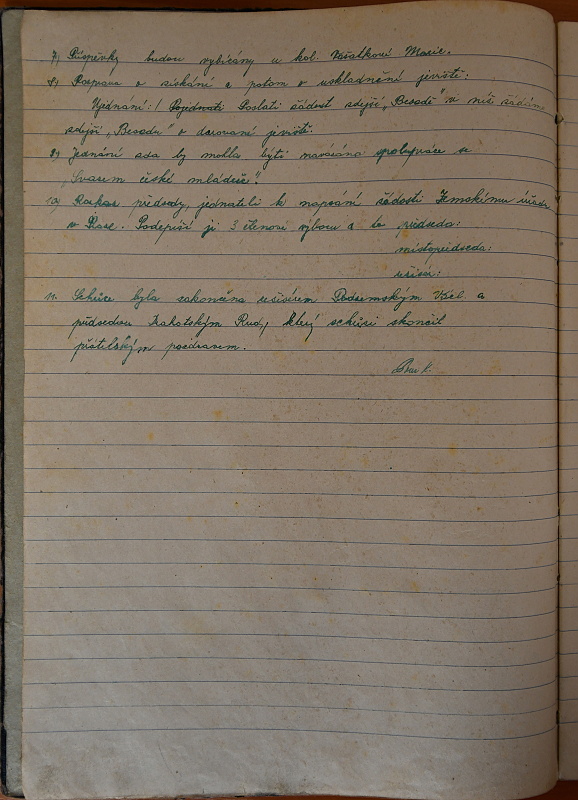 7) Příspěvky budou vybírány u kol. Všatkové Marie.
8) Rozprava o získání a potom o uskladnění jeviště:
Ujednání: / Pojednati Poslati žádost zdejší „Besedě" v níž žádáme
zdejší „Besedu" o darování jeviště.
9) Jednání zda by mohla býti navázána spolupráce se
„Svazem české mládeže".
10) Rozkaz předsedy, jednateli k napsání žádosti Zemskému úřadu
v Praze. Podepíší ji 3 členové výboru a to předseda:
místopředseda:
11. Schůze byla zakončena režisérem Podzemským Vzel. a
předsedou Rud, který schůzi skončil
přátelským pozdravem.